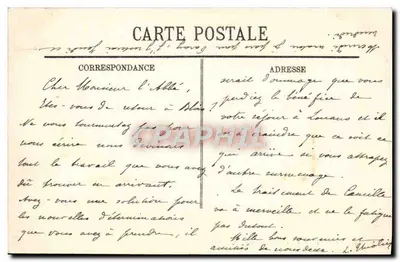 CARTE POSTALE
CORRESPONDANCE
Cher Monsieur l'Abbé,
Etes-vous de retour à Blois,
Ne vous tourmentez pas pour
nous écrire nous devinons
tout le travail que vous avez
dû trouver en arrivant.
Avez-vous une solution pour
les nouvelles déterminations
que vous avez à prendre, il
ADRESSE
serait dommage que vous
perdiez le bénéfice de
votre séjour à et
à craindre que ce soit ce
qui arrive si vous attrapez
d'autre surmenage.
Le traitement de Camille
va à merveille et ne le fatigue
pas du tout.
Mille bons souvenirs et
amitiés de nous deux.
CPARAMA